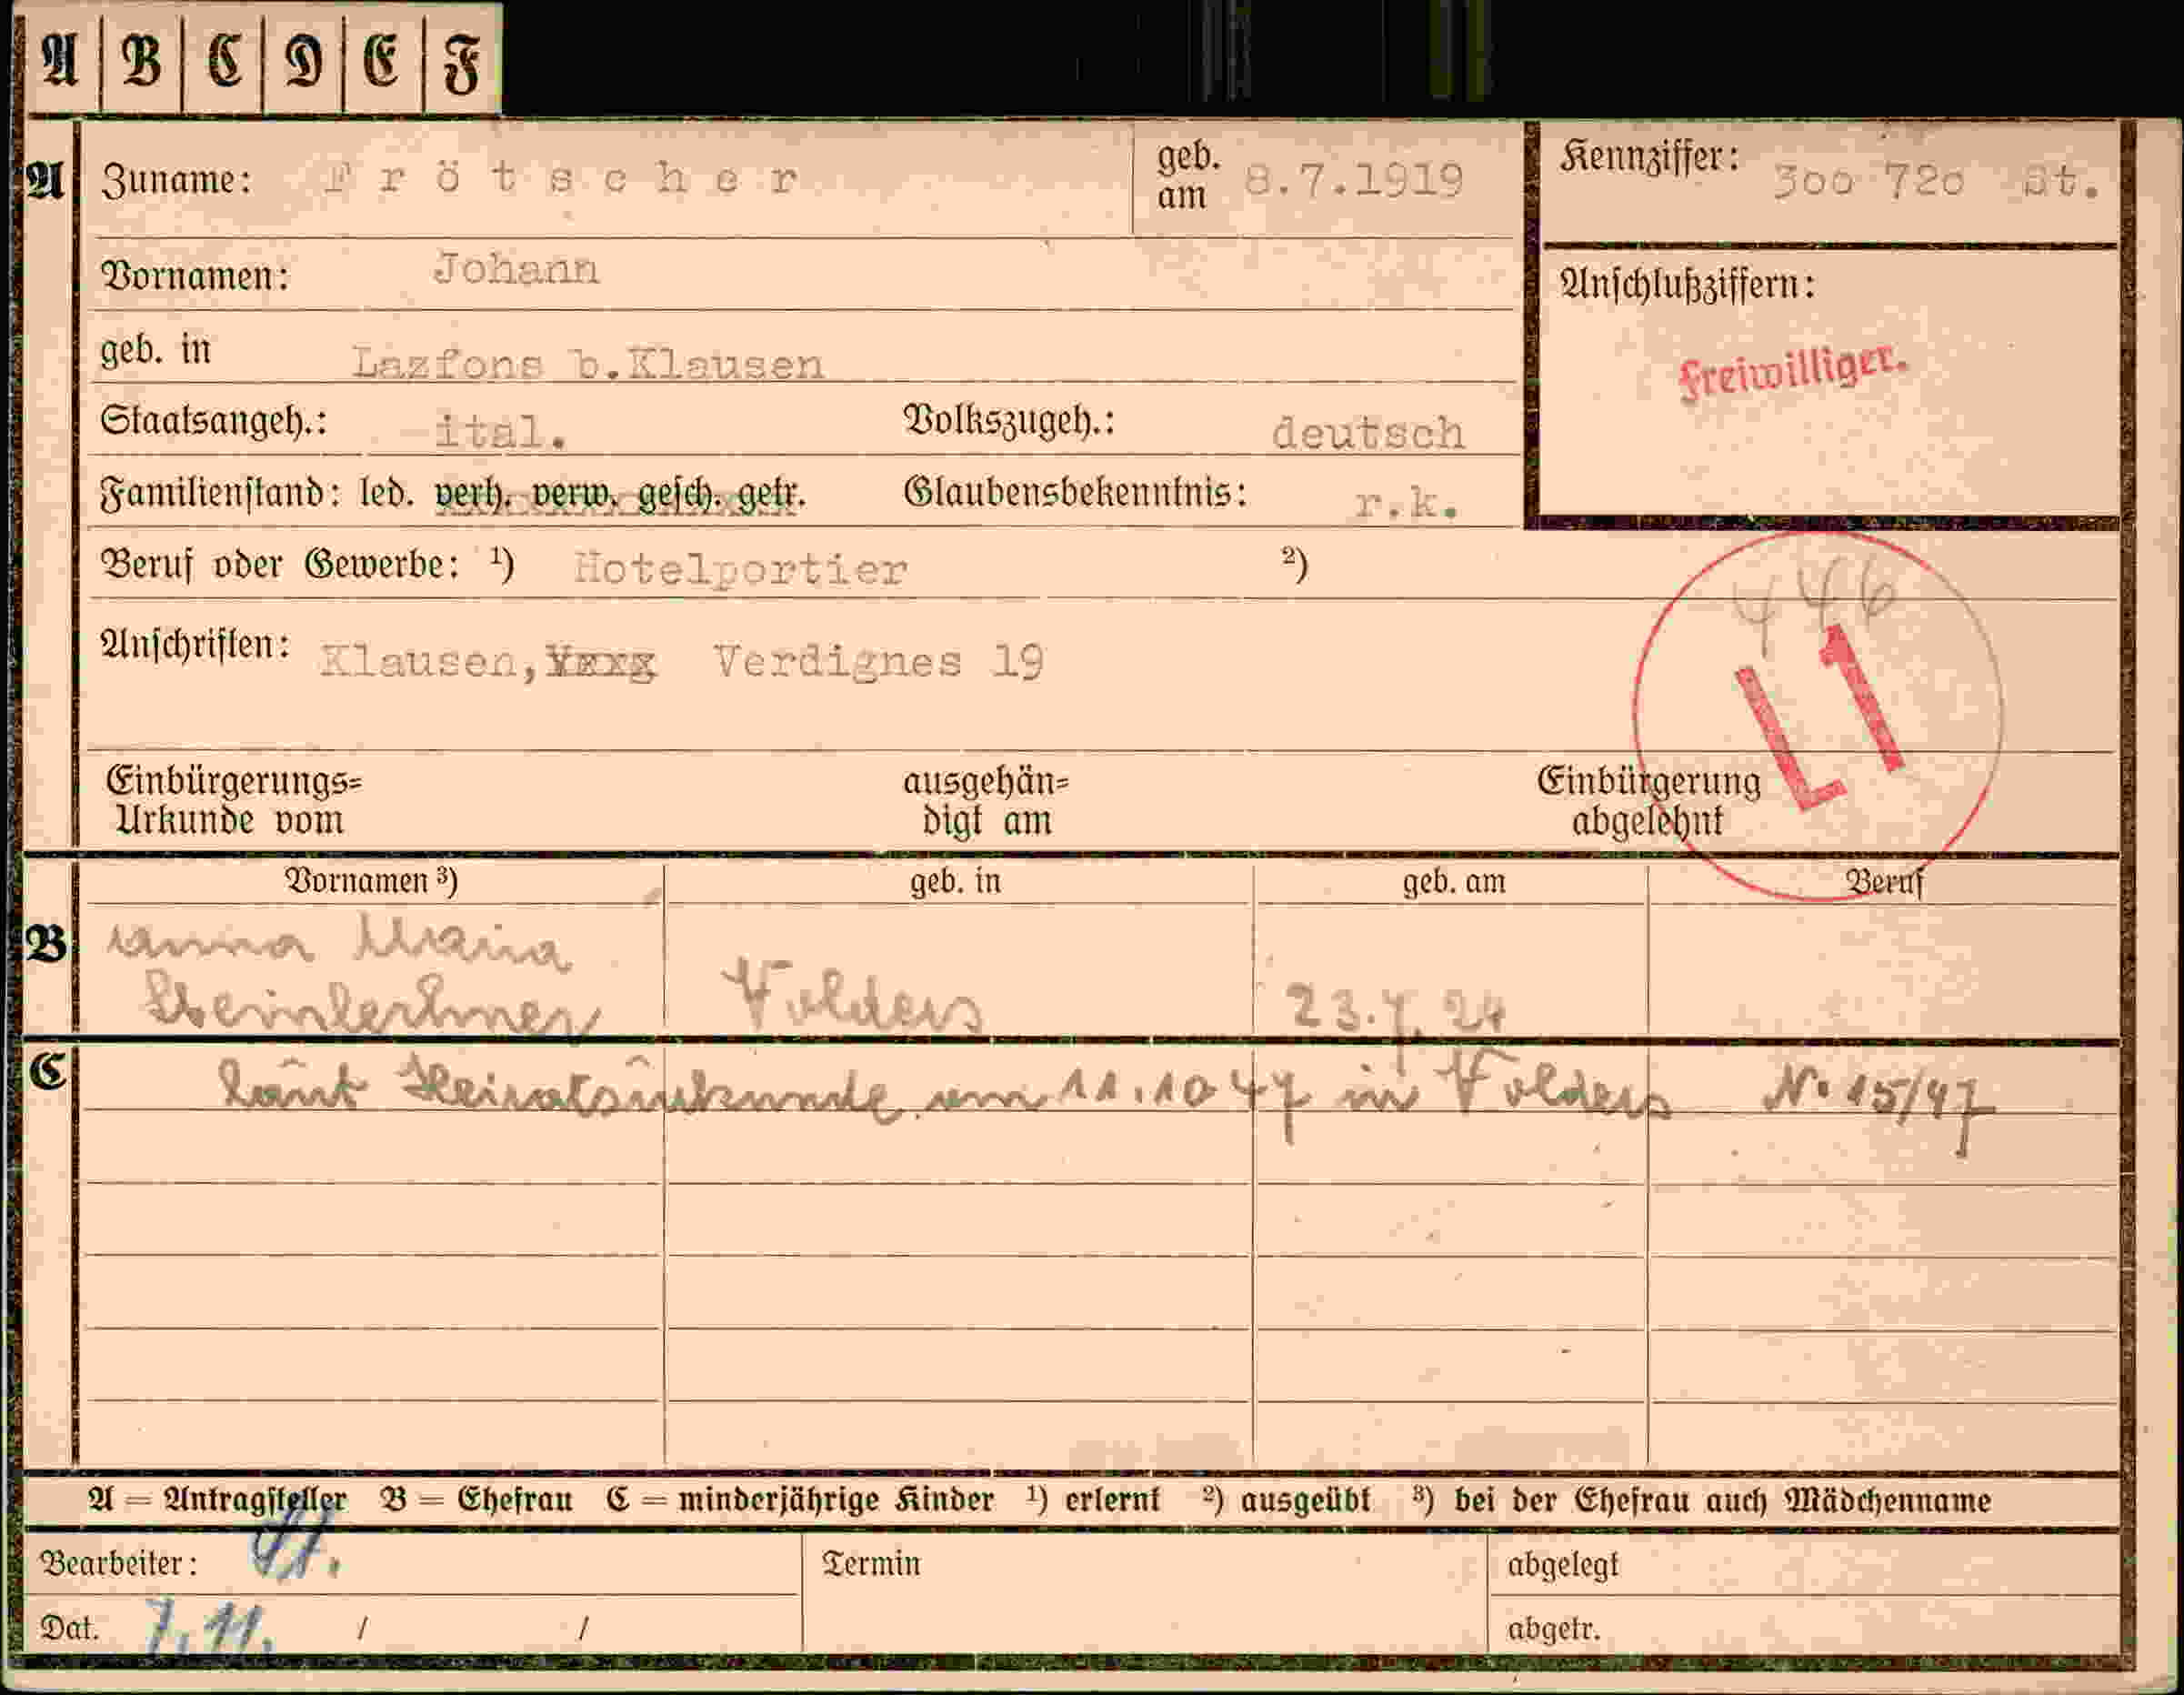 A B C D E F
A Zuname: Frötscher geb. am 8.7.1919 Kennziffer: 3oo 72o St.
Vornamen: Johann Anschlußziffern:
geb. in Lazfons b.Klausen Freiwilliger.
Staatsangeh.: ital. Volkszugeh.: deutsch
Familienstand: led. verh. verw. gesch. getr. Glaubensbekenntnis: r.k.
Beruf oder Gewerbe: ¹) Hotelportier ²) 446
Anschriften: Klausen, Verdignes 19 L1
Einbürgerungs= ausgehän= Einbürgerung
Urkunde vom digt am abgelehnt
Vornamen ³) geb. in geb. am Beruf
B Anna Maria
Volders 23.7.24
C laut Heiratsurkunde am 11.10 47 in Volders No 15/47
A = Antragsteller B = Ehefrau C = minderjährige Kinder ¹) erlernt ²) ausgeübt ³) bei der Ehefrau auch Mädchenname
Bearbeiter: Termin abgelegt
Dat. 7.11. / / abgetr.